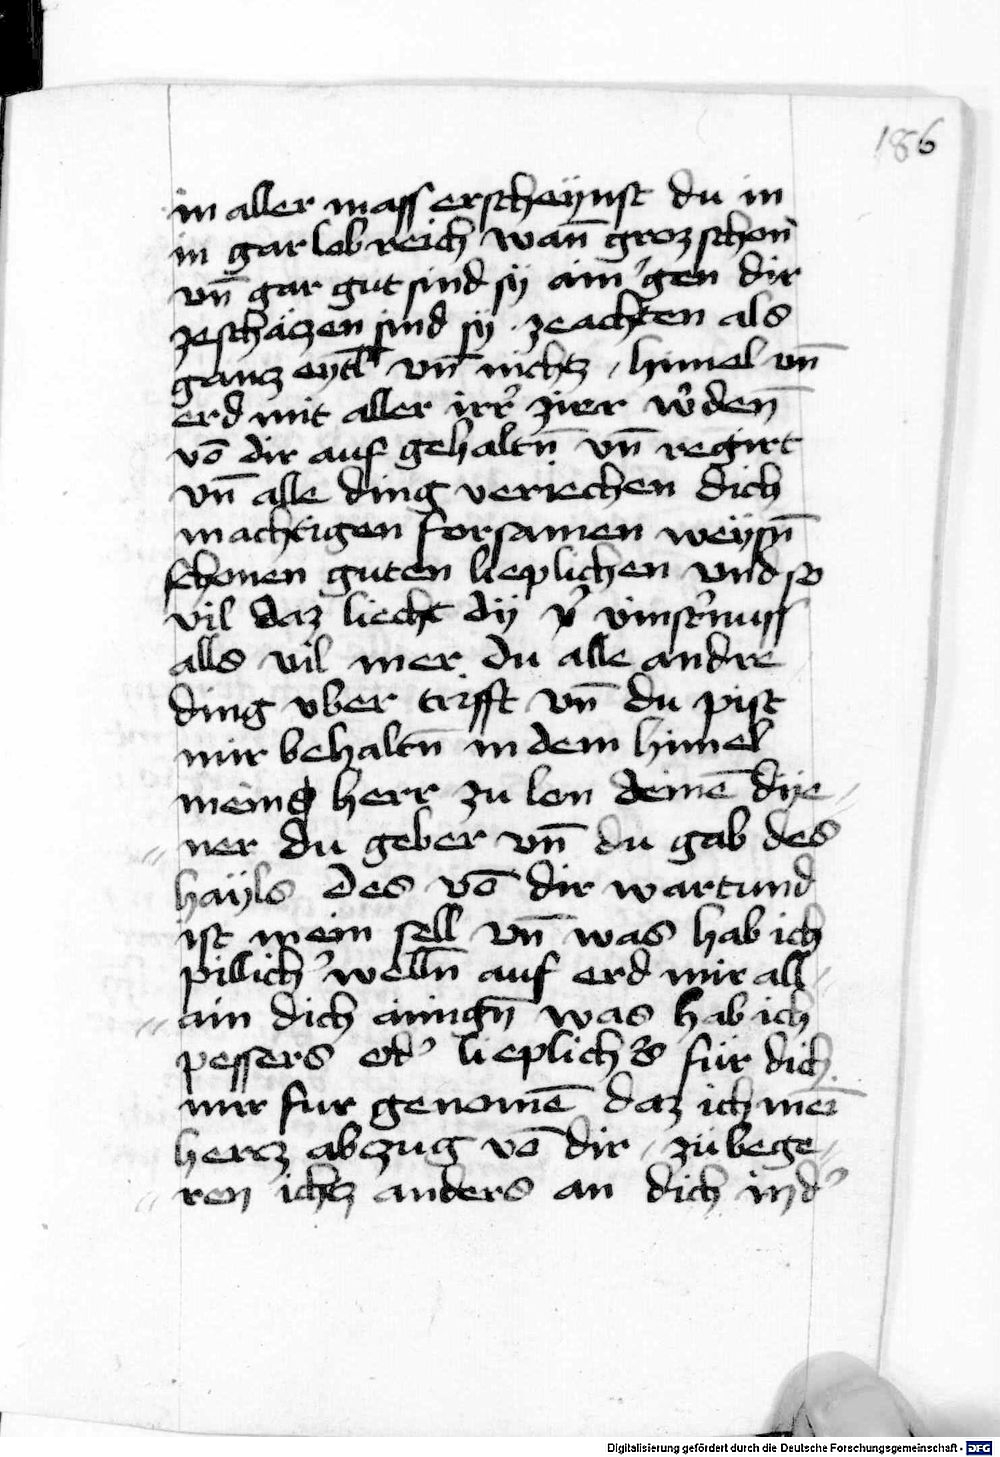 186
in aller mass erscheÿnst du in
in gar lobreich wan̄ groz schon
vn̄ gar gut sind sÿ ain'gen dir
zeschäczen sind sÿ zeachten als
gancz eytl vn̄ nichtz / himel vn̄
erd mit aller irr' zier w'den̄
vō dir auf gehaltn̄ vn̄ regirt
vn̄ alle ding veriechen dich
machtigen forsamen weysn̄
schonen guten lieplichen vnd so
vil daz liecht dÿ v' vinst'nuss
alls vil mer du alle andre
ding vber trifft vn̄ du pist
mir behaltn̄ in dem himel
meins herr zu lon deinē dÿe„
„ner du geber vn̄ du gab des
haÿls des vō dir wartund
ist mein sell vn̄ was hab ich
pillich' welln̄ auf erd mir all„
„ain dich ainign̄ was hab ich
pessers od' lieplich's für dich
mir fur genomē daz ich mei
hercz abzug vō dir / zü bege„
„ren ichtz anders an dich in d'
Digitalisierung gefördert durch die Deutsche Forschungsgemeinschaft - DFG